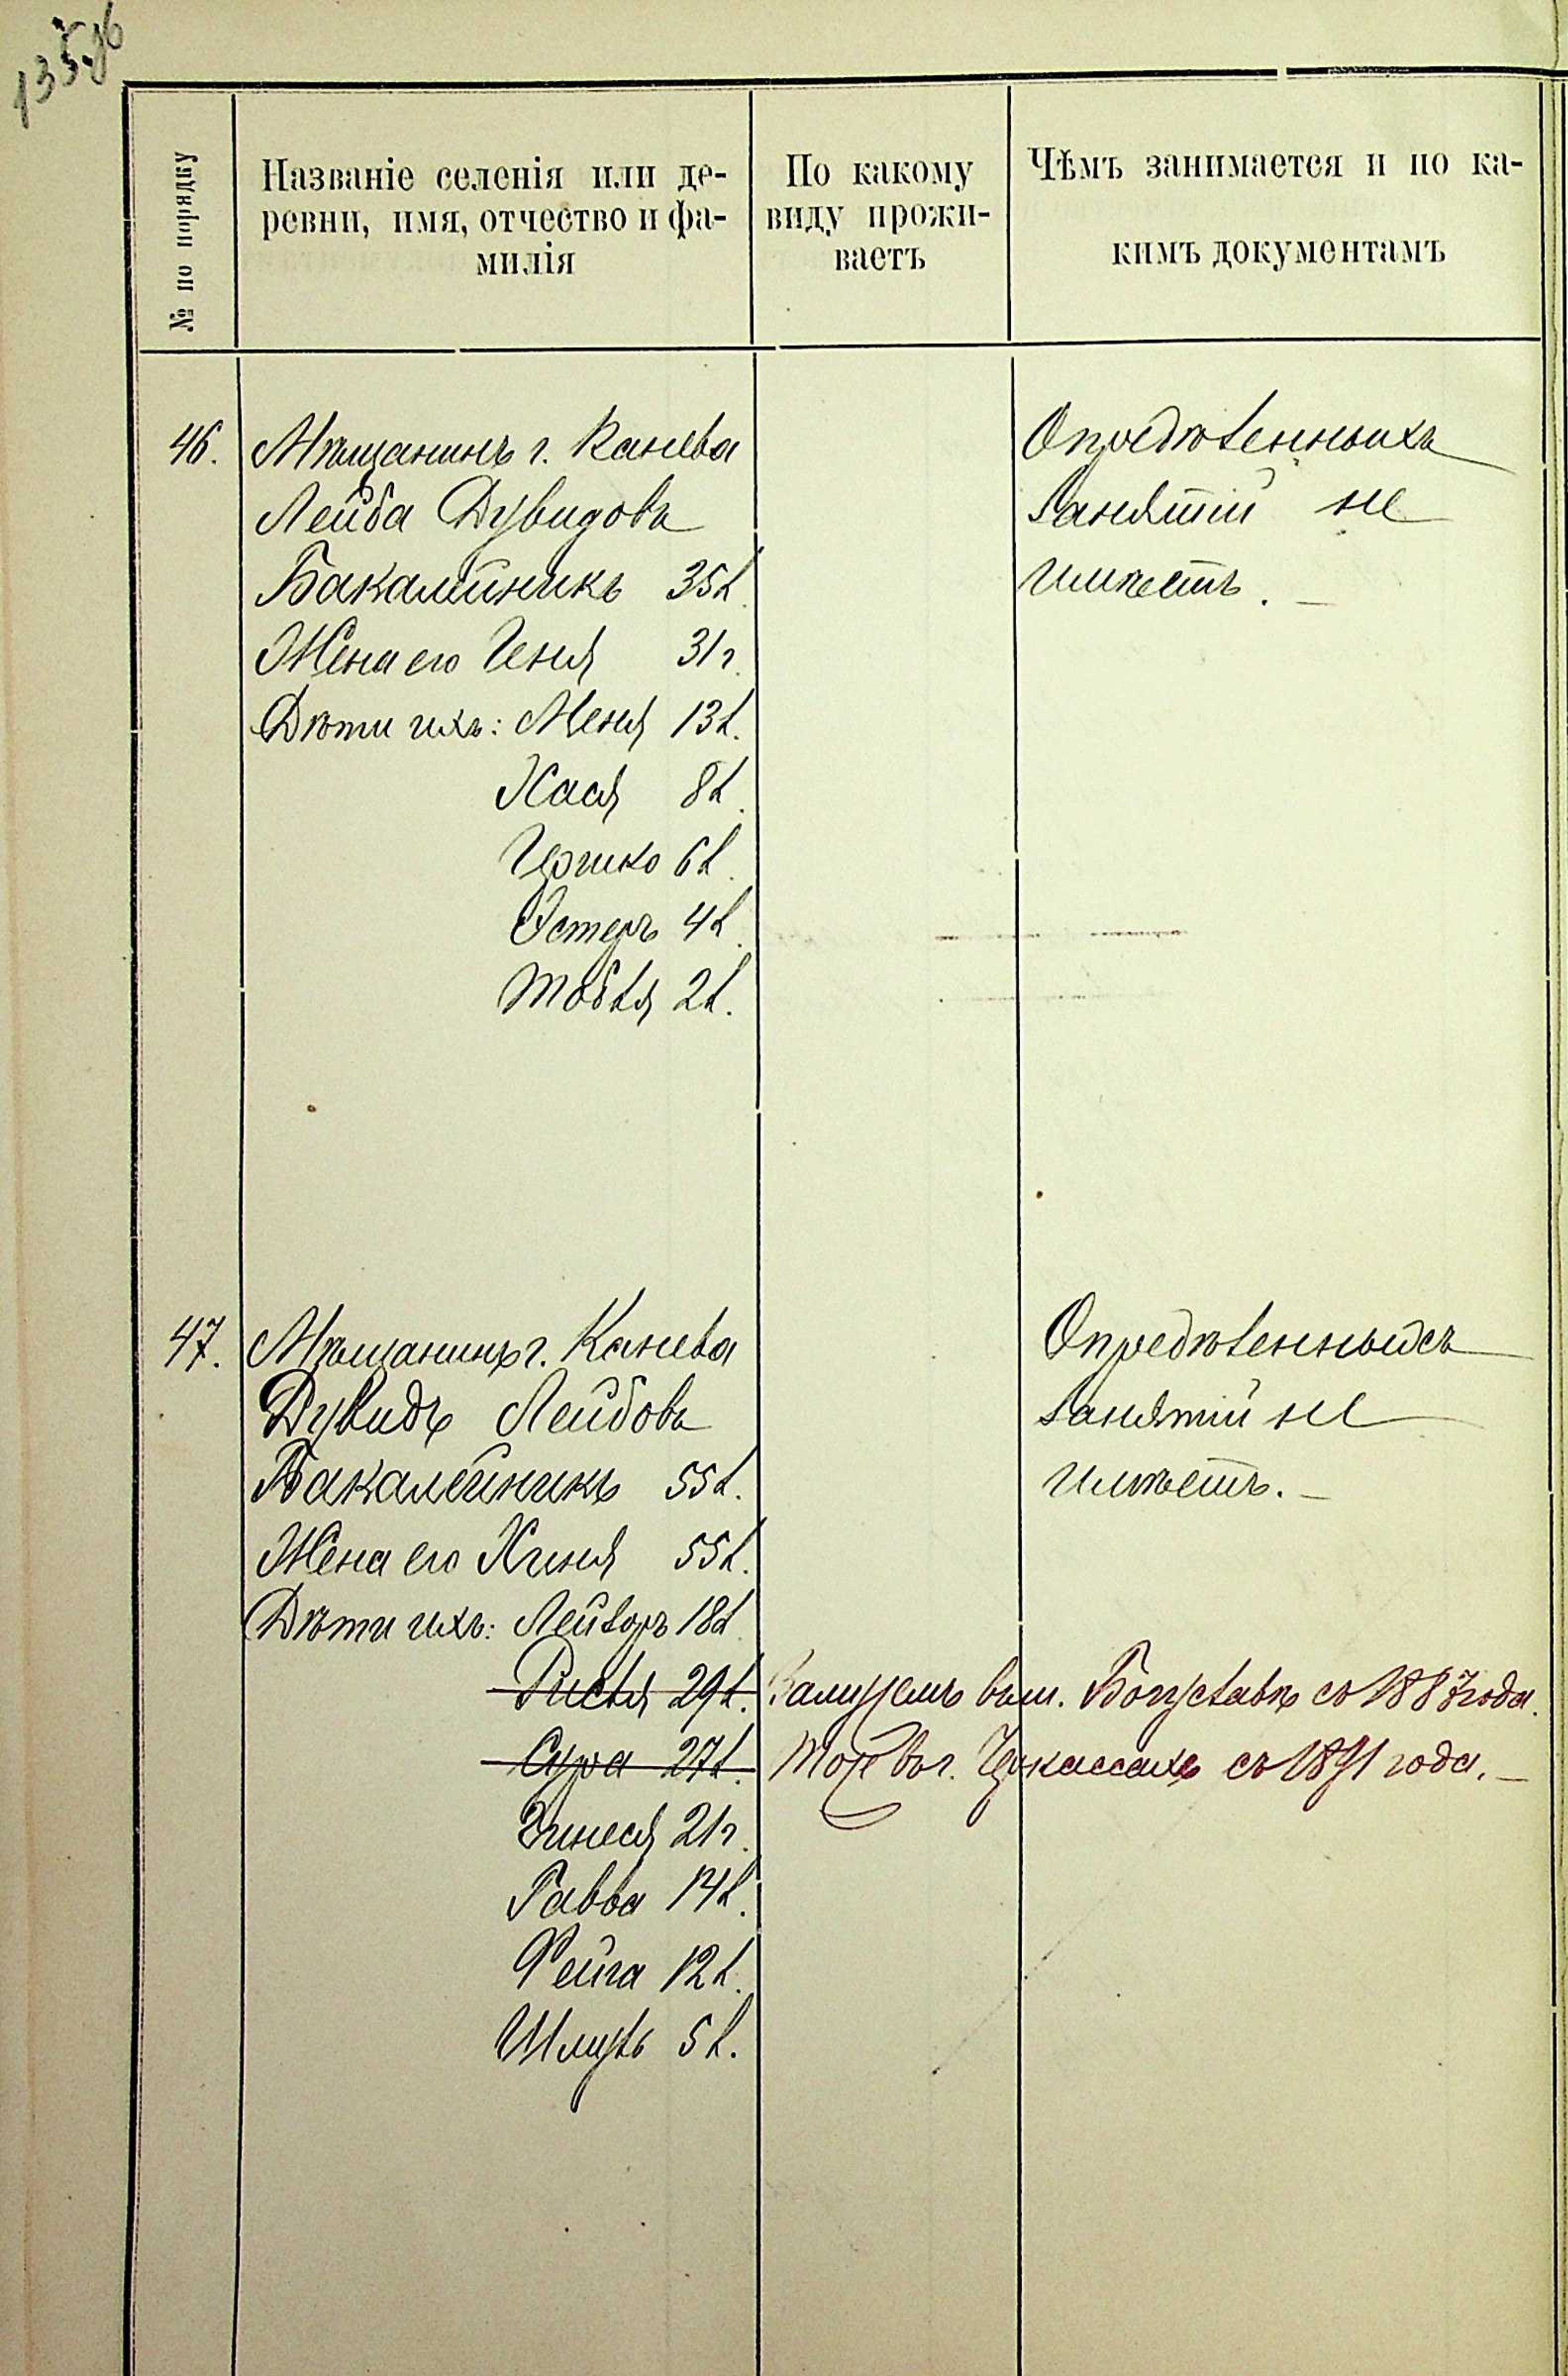 № по порядку
Названіе селенія или де-
ревни, имя, отчество и фа-
милія
По какому
виду прожи-
ваетъ
Чѣмъ занимается и по ка-
кимъ документамъ
46.
Мѣщанинъ г. Канева
Лейба Дувидовъ
Бакалейникъ 35 л.
Жена его Геня 31 г.
Дѣти ихъ: Меня 13 л.
Хася 8 л.
Гершко 6 л.
Эстеръ 4 л.
Мобля 2 л.
Опредѣленныхъ
занятій не
имѣетъ.
47.
Мѣщанинъ г. Канева
Дувидъ Лейбовъ
Бакалейникъ 55 л.
Жена его Хиня 55 л.
Дѣти ихъ: Лейзоръ 18 л.
29 л. Замужемъ въ м. Богуславѣ съ 1887 года.
Сура 27 л. Тоже въ г. Черкассахъ съ 1891 года.
21 г.
14 л.
Фейга 12 л.
Шмуль 5 л.
Опредѣленныхъ
занятій не
имѣетъ.